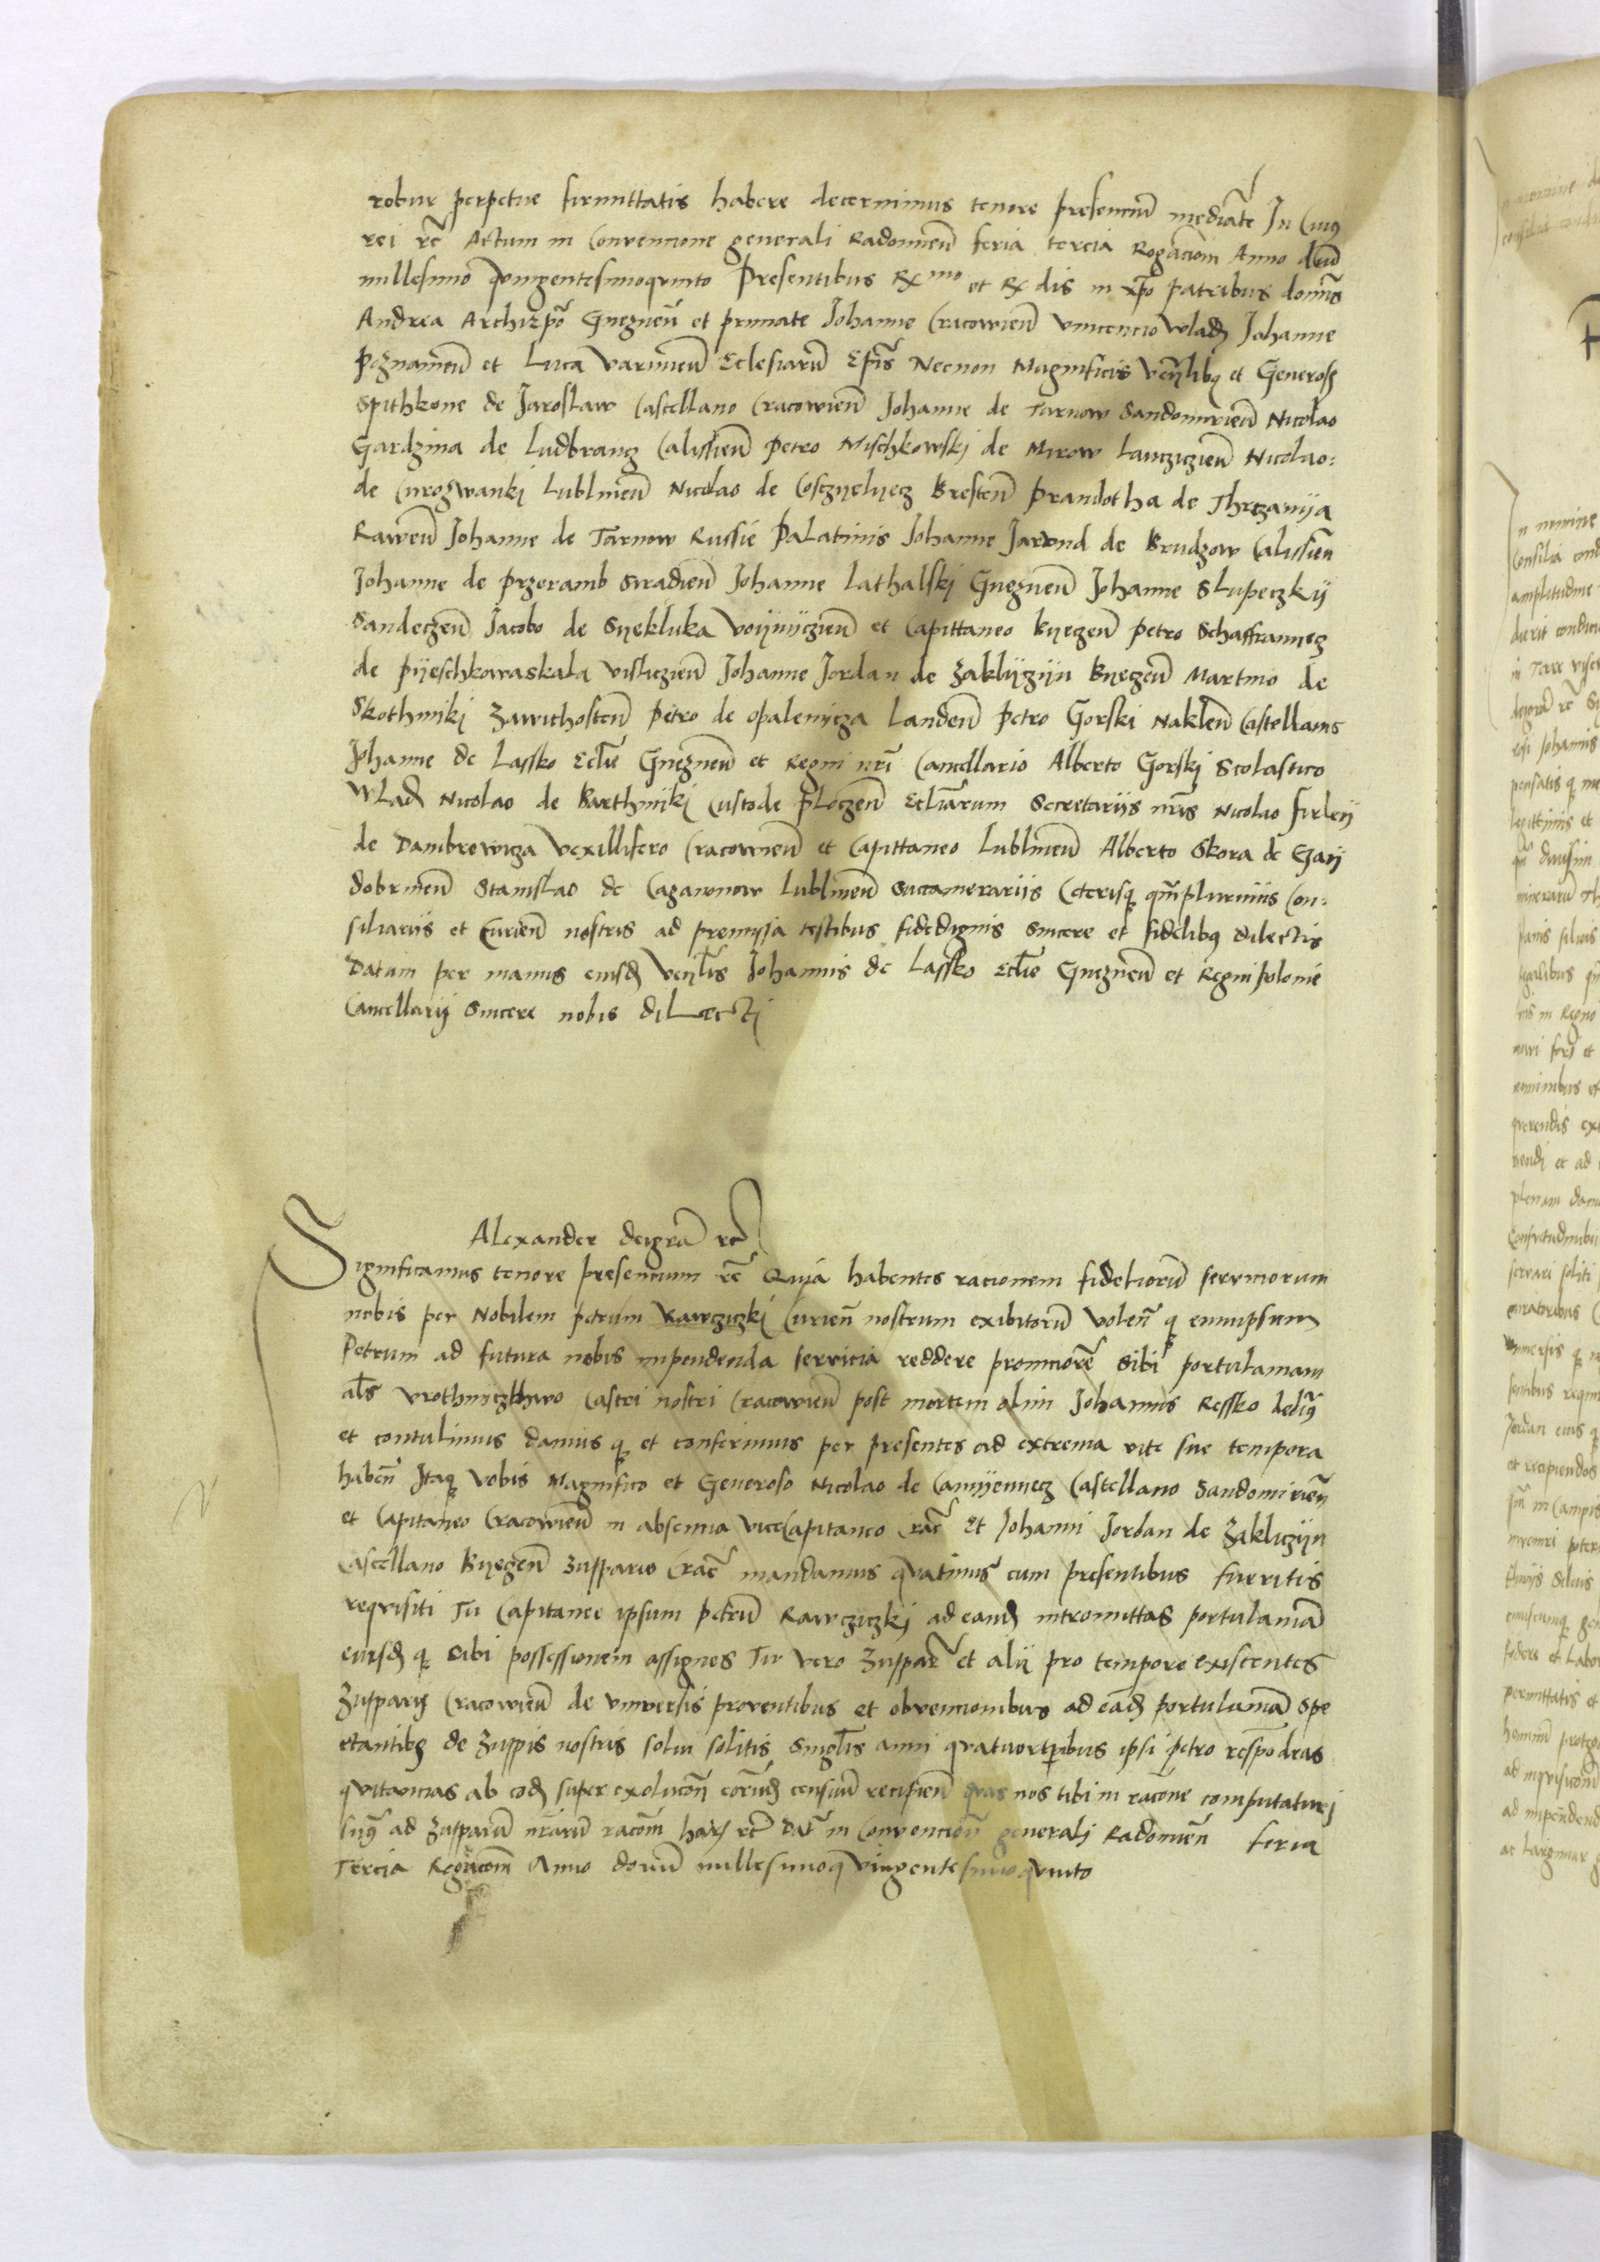 robur perpetue firmittatis habere decernimus tenore presencium mediate In Cuius
rei rc̃ Actum in Convencione generali Radomien̄ feria tercia Rogacion̄ Anno dn̄i
millesimo Quingentesimoquinto Presentibus Rx mo et Rx dis in xp̄o patribus domīs
Andrea Archiep̄o Gneznen̄ et primate Johanne Cracovien̄ vincencio wladn̄ Johanne
Poznanien̄ et Luca Varmien̄ Eclesiarū Ep̄is Necnon Magnificis Ven̄libus et Generosis
Spithkone de Jaroslaw Castellano Cracowien̄ Johanne de Tarnow Sandomirien̄ Nicolao
Gardzina de Ludbrancz Calissien̄ Petro Mischkowskj de Mirow Lancziczien̄ Nicolao
de Curozwankj Lublinen̄ Nicolao de Cosczyelyecz Bresten̄ Prandotha de Thrczanya
Rawen̄ Johanne de Tarnow Russie Palatinis Johanne Jarand de Brudzow Calissien̄
Johanne de Przeramb Siradien̄ Johanne Lathalskj Gneznen̄ Johanne Slupeczkij
Sandeczen̄ Jacobo de Syekluka Voijniczien̄ et Capittaneo Byeczen̄ Petro Schaffranyecz
de Pyeschkowaskala Visliczien̄ Johanne Jordan de Zaklyczyn Byeczen̄ Martino de
Skothnikj Zawichosten̄ Petro de Opalenicza Landen̄ Petro Gorskj Naklen̄ Castellanis
Johanne de Lassko Ecl̄ie Gneznen̄ et Regni nr̄i Cancellario Alberto Gorskj Scolastico
Wladn̄ Nicolao de Barthnikj Custode Ploczen̄ Ecl̄iarum Secretariis nr̄is Nicolao Firleij
de Dambrowicza Vexillifero Cracowien̄ et Capittaneo Lublinen̄ Alberto Skora de Gaij
dobrinen̄ Stanislao de Caganonow Lublinen̄ Succamerariis Ceterisq̨ qm̄plurimis Con
siliariis et Curien̄ nostris ad premissa testibus fidedignis sincere et fidelibus dilectis
Datum per manus eiusdem Ven̄lis Johannis de Lassko Ecl̄ie Gneznen̄ et Regni polonie
Cancellarij Sincere nobis dilectj
Alexander deigrā rc̃
Significamus tenore presencium rc̃ Quia habentes racionem fideliorū serviciorum
nobis per Nobilem petrum Rawcziczkj Curien̄ nostrum exibitorū Volen̄ q̨ eumipsum
Petrum ad futura nobis impendenda servicia reddere promciorē sibi portulaniam
al̄s vrothniczthwo Castri nostri Cracowien̄ post mortem olim Johannis Ressko dedim̄9
et contulimus damus q̨ et conferimus per presentes ad extrema vite sue tempora
haben̄ Itaq̨ Vobis Magnifico et Generoso Nicolao de Camyenyecz Castellano Sandomirien̄
et Capitaneo Cracowien̄ in absencia viceCapitaneo Crac̄ Et Johanni Jordan de Zakliczyn
Castellano Byeczen̄ Zuppario Crac̄ mandamus quatinus cum presentibus fueritis
requisiti Tu Capitanee ipsum petrū Rawcziczkj ad eandem intromittas portulaniā
eiusdem q̨ sibi possessionem assignes Tu vero Zuppar̄ et alij pro tempore existentes
Zupparij Cracowien̄ de universis proventibus et obvencionibus ad eandem portulaniā Spe
ctantibus de Zuppis nostris solui solitis singlīs annj quatuortp̄ibus ipsi petro respōdeas
quitancias ab eodem super exolucōn̄ eorundem censiū recipien̄ quas nos tibi in racone computaturi
sum9 ad Zupparū nr̄arū racōm̄ harum rc̃ Dat̄ in Convencion̄ generali Radomien̄ feria
Tercia Rogacōm̄ Anno domin̄ millesimoquingentesimoquinto